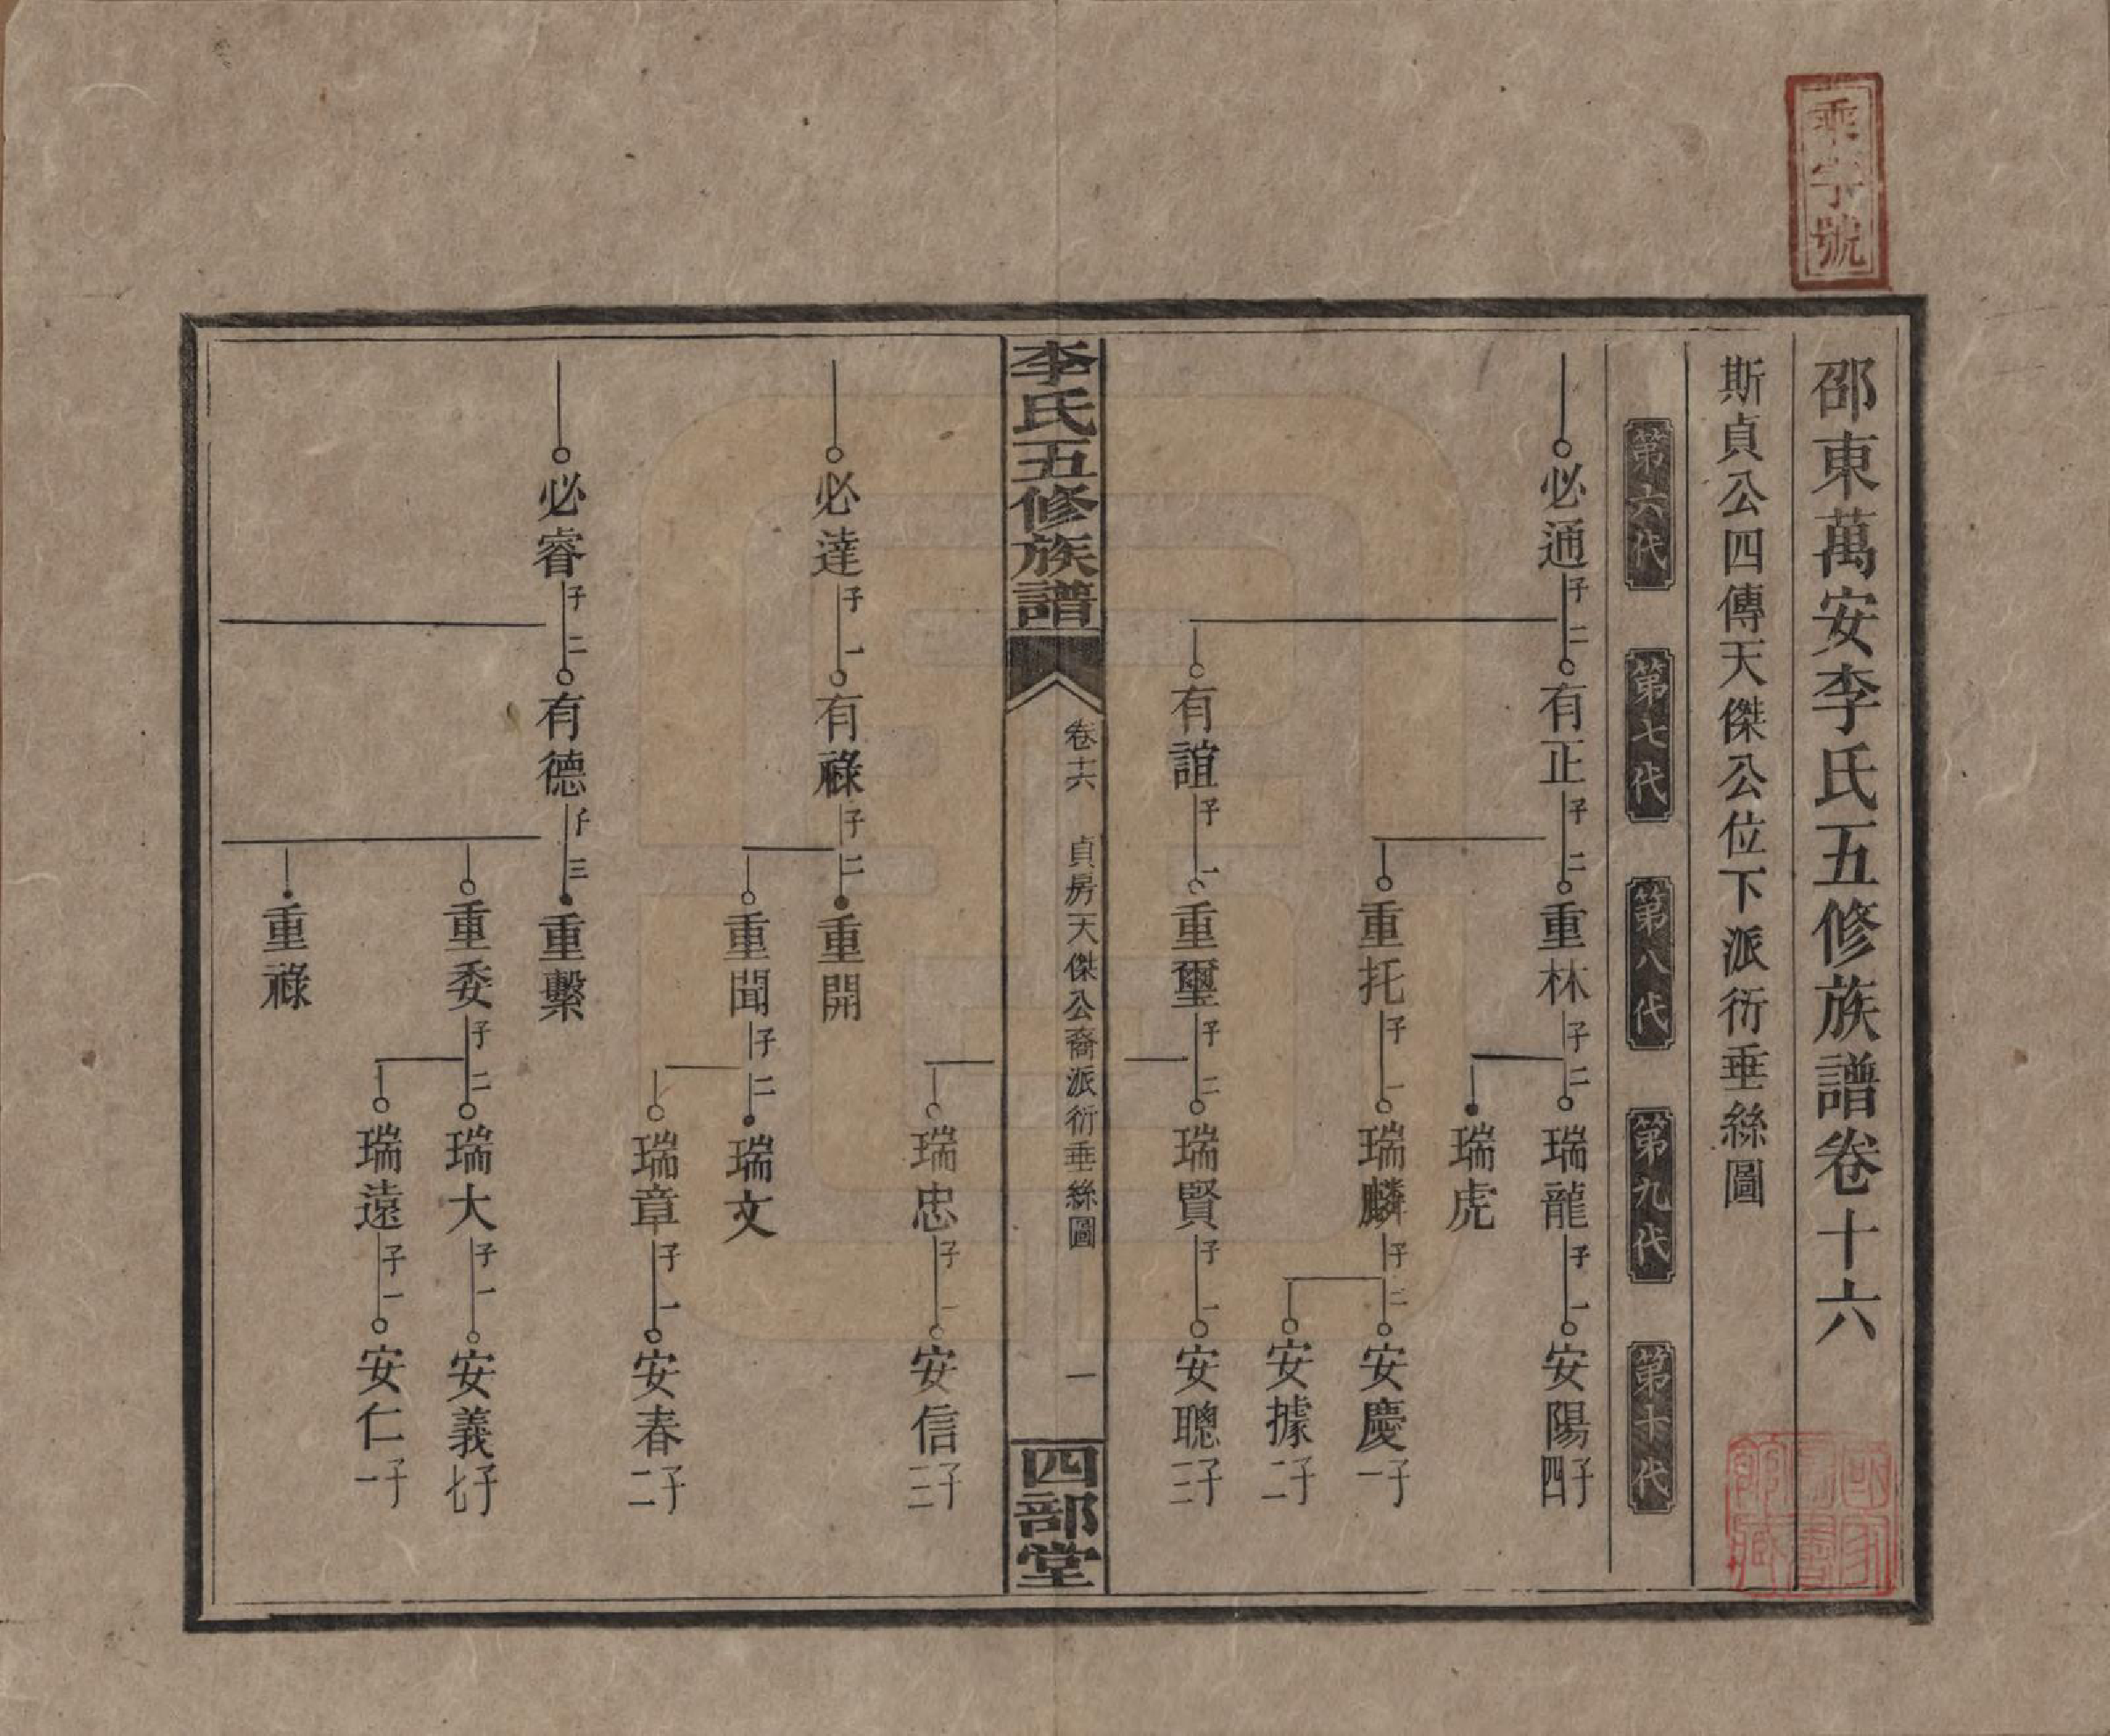 乘字號
邵東萬安李氏五修族譜卷十六
斯貞公四傳天傑公位下派衍垂絲圖
第六代
第七代
第八代
第九代
第十代
必通 子二
有正 子二
重林 子二
瑞龍 子一
安陽 子四
瑞虎
重托 子一
瑞麟 子二
安慶 子一
安據 子二
有誼 子一
重璽 子二
瑞賢 子一
安聰 子三
李氏五修族譜
卷十六
貞房天傑公裔派衍垂絲圖
一
四部堂
瑞忠 子一
安信 子三
必達 子一
有祿 子二
重開
重聞 子二
瑞文
瑞章 子一
安春 子二
必睿 子二
有德 子三
重繫
重委 子二
瑞大 子一
安義 子七
瑞遠 子一
安仁 子一
重祿